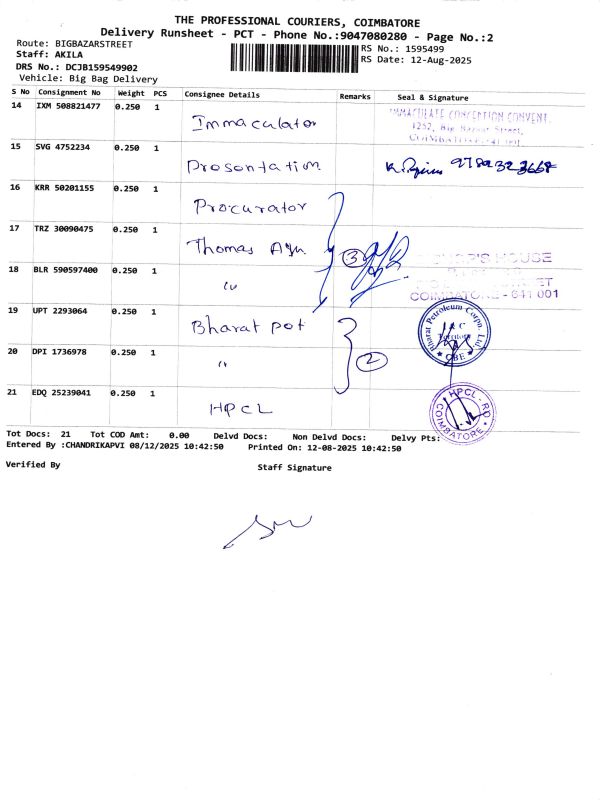 THE PROFESSIONAL COURIERS, COIMBATORE
Delivery Runsheet - PCT - Phone No.:9047080280 - Page No.:2
Route: BIGBAZARSTREET
RS No.: 1595499
Staff: AKILA
RS Date: 12-Aug-2025
DRS No.: DCJB159549902
Vehicle: Big Bag Delivery
S No Consignment No Weight PCS Consignee Details Remarks Seal & Signature
14 IXM 508821477 0.250 1 Immaculator
IMMACULATE CONCEPTION CONVENT,
1252, Big Bazaar Street,
COIMBATORE - 641 001.
15 SVG 4752234 0.250 1 Prosontation 
16 KRR 50201155 0.250 1 Procurator
17 TRZ 30090475 0.250 1 Thomas Agn 3
HOUSE
18 BLR 590597400 0.250 1 "
COIMBATORE - 641 001
19 UPT 2293064 0.250 1 Bharat pot
Bharat Petroleum Corpn. Ltd
CBE
20 DPI 1736978 0.250 1 " 2
21 EDQ 25239041 0.250 1 HPCL
HPCL - RO
COIMBATORE
Tot Docs: 21 Tot COD Amt: 0.00 Delvd Docs: Non Delvd Docs: Delvy Pts:
Entered By :CHANDRIKAPVI 08/12/2025 10:42:50 Printed On: 12-08-2025 10:42:50
Verified By Staff Signature